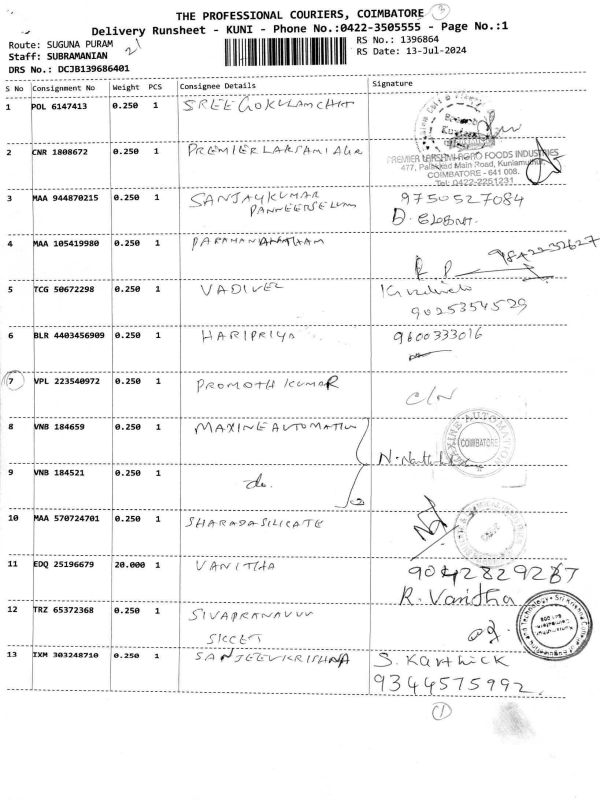 THE PROFESSIONAL COURIERS, COIMBATORE 3
Delivery Runsheet - KUNI - Phone No.:0422-3505555 - Page No.:1
Route: SUGUNA PURAM
RS No.: 1396864
Staff: SUBRAMANIAN 21
RS Date: 13-Jul-2024
DRS No.: DCJB139686401
S No Consignment No Weight PCS Consignee Details Signature
1 POL 6147413 0.250 1 SREE GOKULAM CHIT
2 CNR 1808672 0.250 1 PREMIER LAKSHMI AGR
PREMIER LAKSHMI AGRO FOODS INDUSTRIES
477, Palakkad Main Road, Kuniamuthur,
COIMBATORE - 641 008.
Tel: 0422-2251231
3 MAA 944870215 0.250 1 SANJAYKUMAR 9750527084
PANNEERSELVAM
4 MAA 105419980 0.250 1 PARAMANANTHAM 9842232627
R P
5 TCG 50672298 0.250 1 VADIVEL
9025354529
6 BLR 4403456909 0.250 1 HARIPRIYA 9600333016
7 VPL 223540972 0.250 1 PROMOTH KUMAR C/N
8 VNB 184659 0.250 1 MAXINE AUTOMATION
MAXINE AUTOMATION
COIMBATORE
9 VNB 184521 0.250 1 do.
10 MAA 570724701 0.250 1 SHARADA SILICATE
11 EDQ 25196679 20.000 1 VANITHA 9042829267
R. Vanitha
12 TRZ 65372368 0.250 1 SIVAPRANAVVV
SKCET
13 IXM 303248710 0.250 1 SANJEEVKRISHNA S. Karthick
9344575992
1